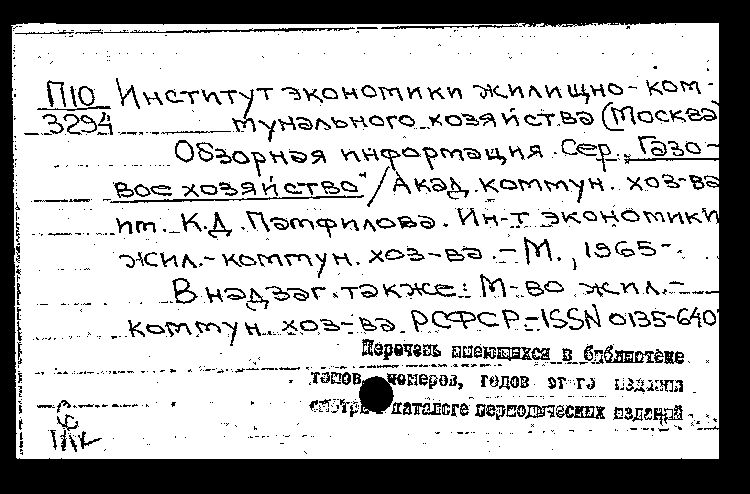 П10 Институт экономики жилищно-ком-
3294 мунального хозяйства (Москва)
Обзорная информация. Сер. „Газо-
вое хозяйство“ / Акад. коммун. хоз-ва
им. К.Д. Памфилова. Ин-т экономики
жил.-коммун. хоз-ва. – М., 1965-.
В надзаг. также: М-во жил.-
коммун. хоз-ва РСФСР. – ISSN 0135-640
Перечень имеющихся в библиотеке
томов, номеров, годов этого издания
смотри в каталоге периодических изданий